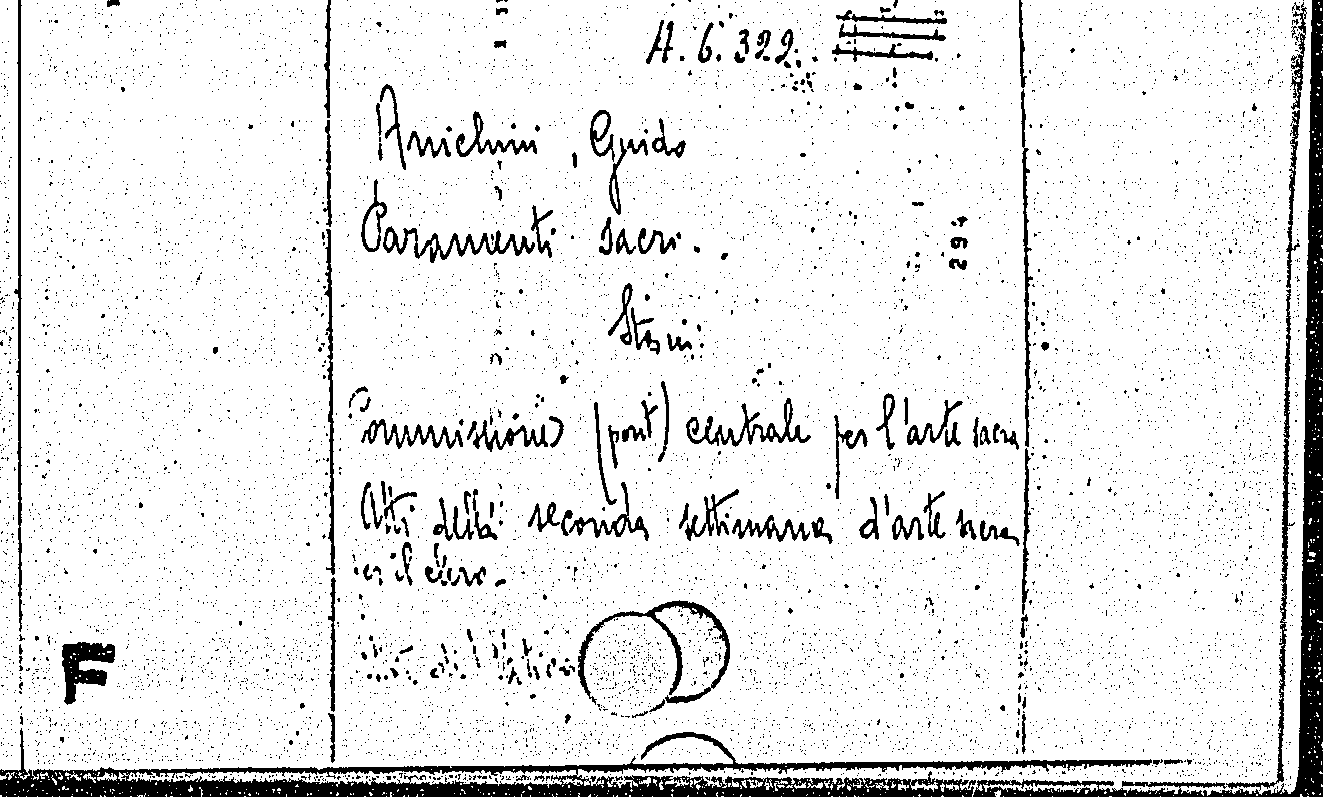 A. 6. 322.
Anichini, Guido
Paramenti sacri.
294
Commissione (pont) centrale per l'arte sacra
Atti della seconda settimana d'arte sacra
per il clero.
F